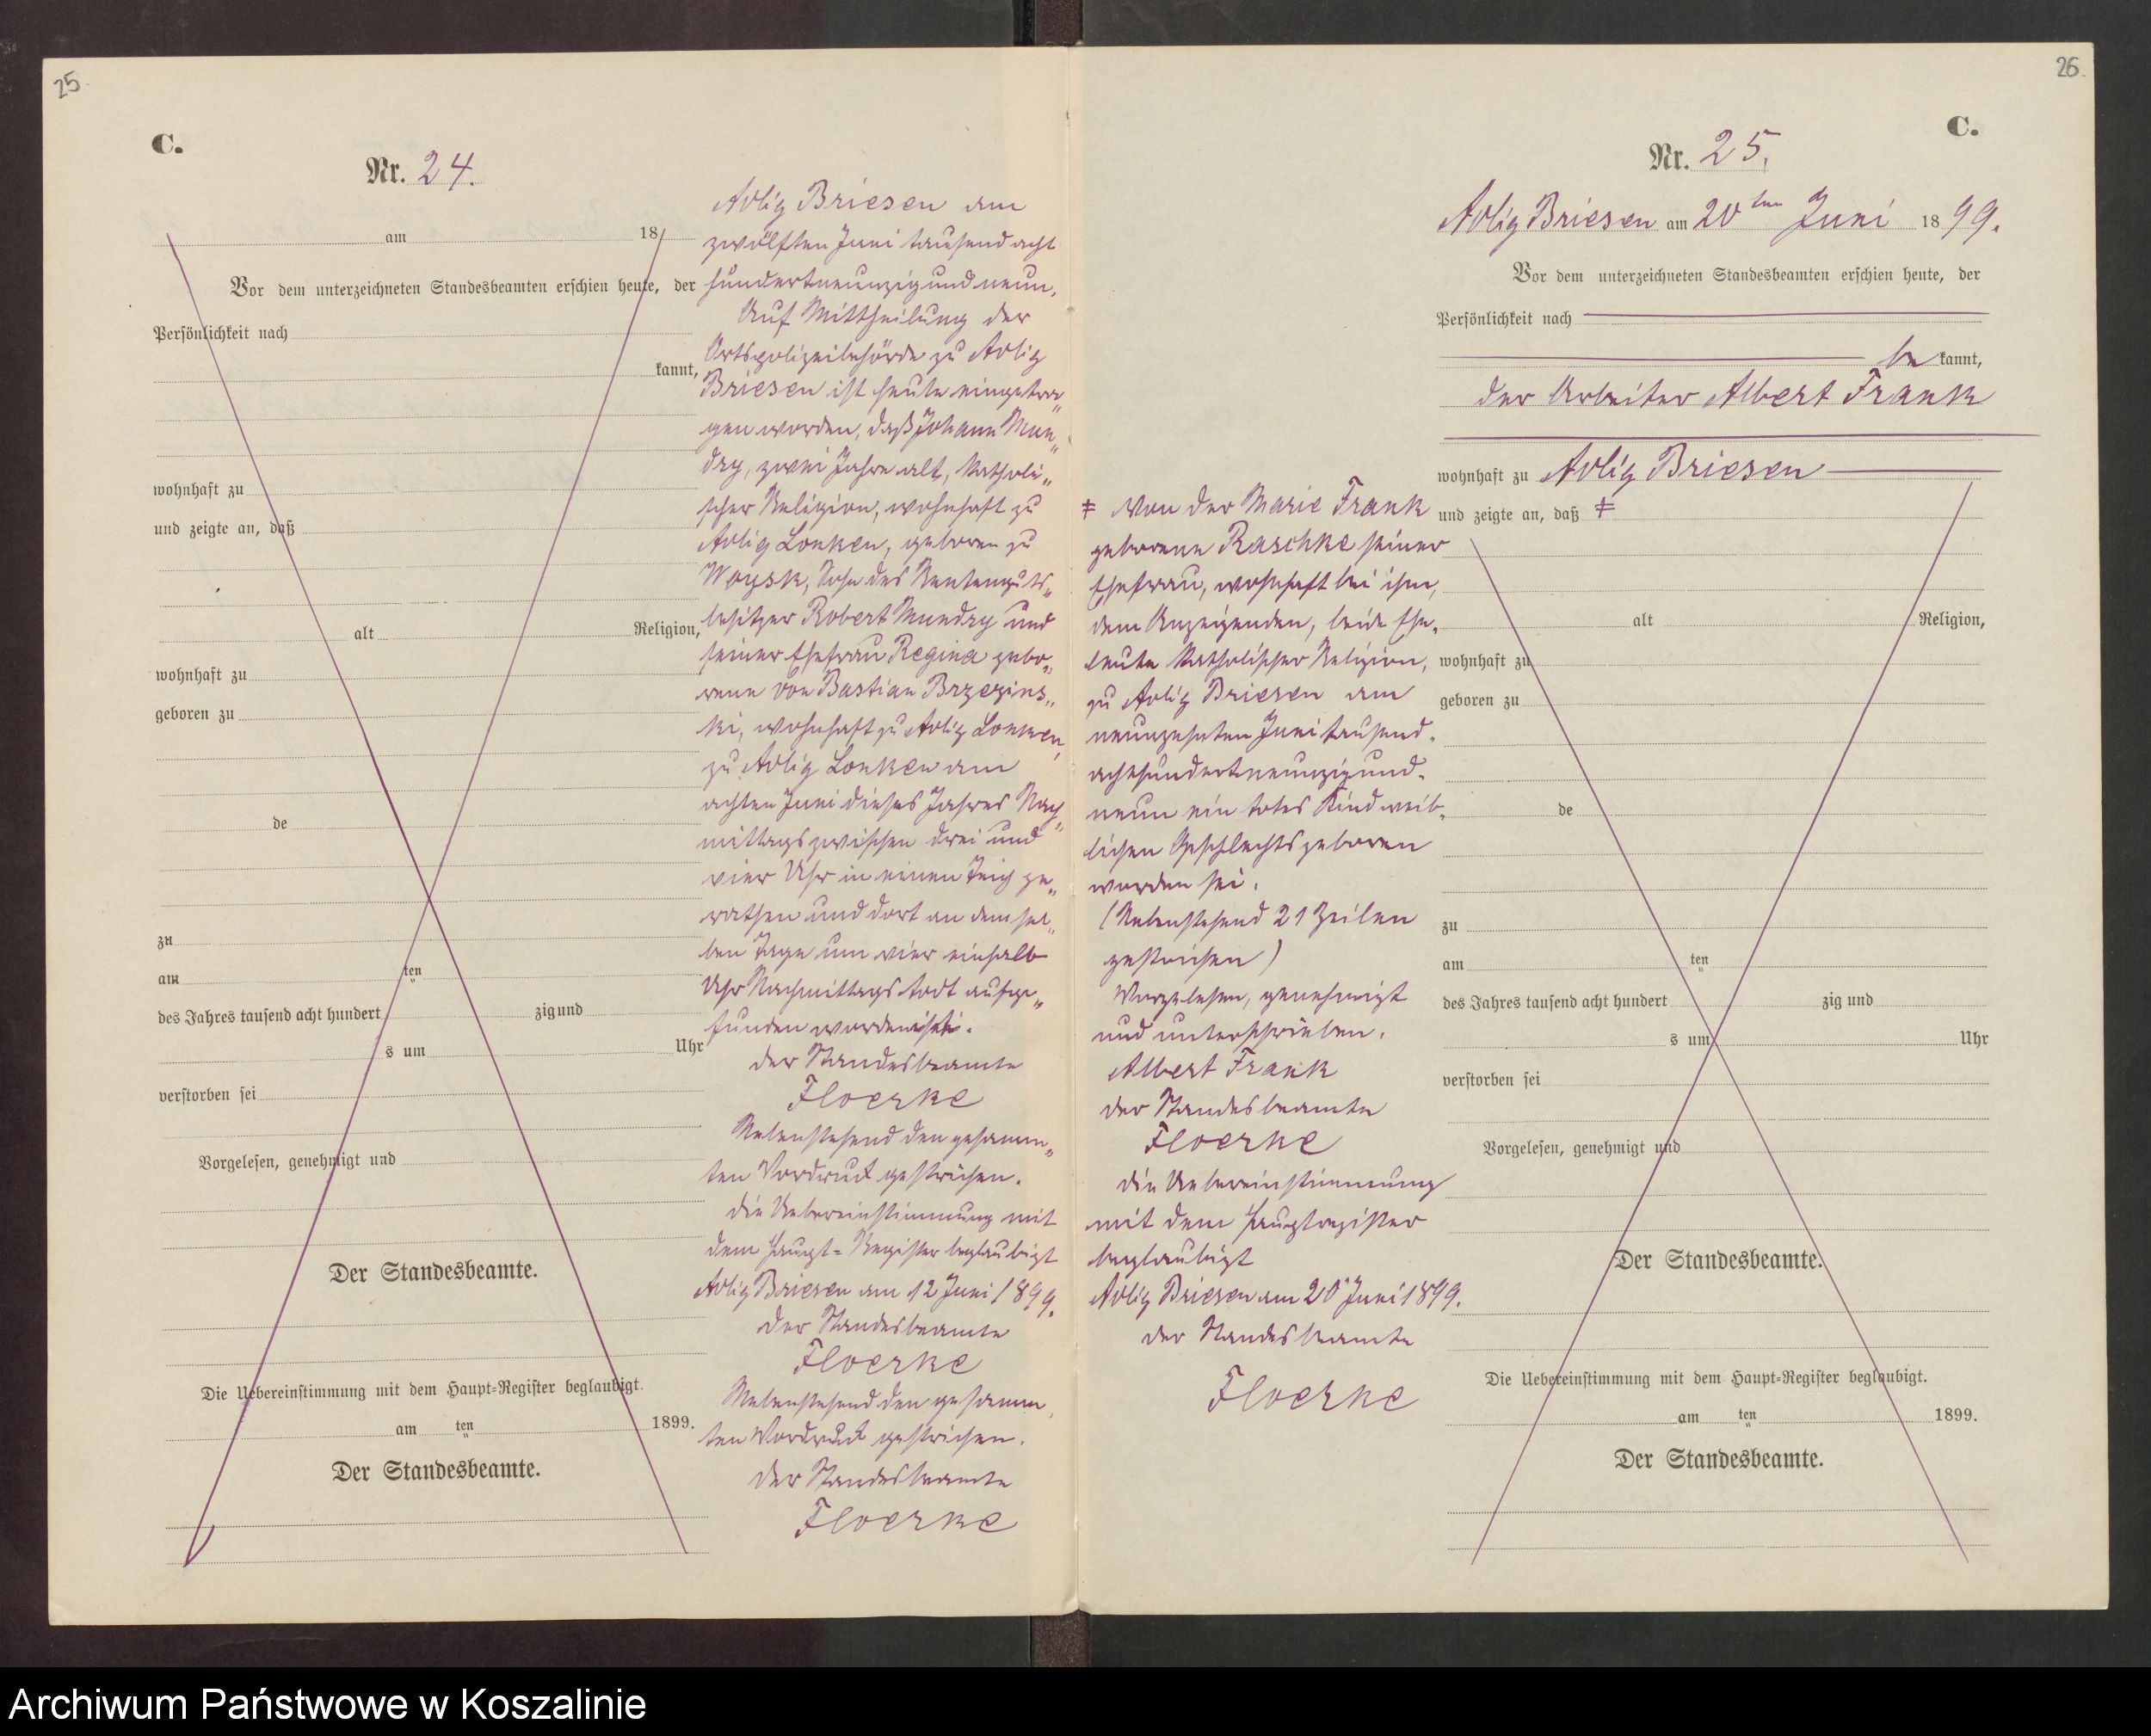 25.
C.
Nr. 24.
am 18
Vor dem unterzeichneten Standesbeamten erschien heute, der
Persönlichkeit nach
kannt,
wohnhaft zu
und zeigte an, daß
alt Religion,
wohnhaft zu
geboren zu
de
zu
am ten
des Jahres tausend acht hundert zig und
s um Uhr
verstorben sei
Vorgelesen, genehmigt und
Der Standesbeamte.
Die Uebereinstimmung mit dem Haupt=Register beglaubigt.
am ten 1899.
Der Standesbeamte.
Adlig Briesen am
zwölften Juni tausend acht
hundertneunzigundneun.
Auf Mittheilung der
Ortspolizeibehörde zu Adlig
Briesen ist heute eingetra"
gen worden, daß Johann Mun"
dry, zwei Jahre alt, katholi"
scher Religion, wohnhaft zu
Adlig Lonken, geboren zu
Woysk, Sohn des Rentenguts"
besitzer Robert Mundry und
seiner Ehefrau Regina gebo"
rene von Bastian Brzezins"
ki, wohnhaft zu Adlig Lonken,
zu Adlig Lonken am
achten Juni dieses Jahres Nach"
mittags zwischen drei und
vier Uhr in einen Teich ge"
rathen und dort an demsel"
ben Tage um vier einhalb
Uhr Nachmittags todt aufge"
funden worden
der Standesbeamte
Floerke
Nebenstehend den gesamm"
ten Vordruck gestrichen.
die Uebereinstimmung mit
dem Haupt=Register beglaubigt
Adlig Briesen am 12 Juni 1899.
der Standesbeamte
Floerke
Nebenstehend den gesamm
ten Vordruck gestrichen.
der Standesbeamte
Floerke
26.
C.
Nr. 25.
Adlig Briesen am 20ten Juni 1899.
Vor dem unterzeichneten Standesbeamten erschien heute, der
Persönlichkeit nach
be kannt,
der Arbeiter Albert Frank
wohnhaft zu Adlig Briesen
und zeigte an, daß ‡
alt Religion,
wohnhaft zu
geboren zu
de
zu
am ten
des Jahres tausend acht hundert zig und
s um Uhr
verstorben sei
Vorgelesen, genehmigt und
Der Standesbeamte.
Die Uebereinstimmung mit dem Haupt=Register beglaubigt.
am ten 1899.
Der Standesbeamte.
‡ von der Marie Frank
geborene Raschke seiner
Ehefrau, wohnhaft bei ihm,
dem Anzeigenden, beide Ehe-
leute katholischer Religion,
zu Adlig Briesen am
neunzehnten Juni tausend-
achthundertneunzigund-
neun ein totes Kind weib-
lichen Geschlechts geboren
worden sei.
(Nebenstehend 21 Zeilen
gestrichen)
Vorgelesen, genehmigt
und unterschrieben.
Albert Frank
der Standesbeamte
Floerke
die Uebereinstimmung
mit dem Hauptregister
beglaubigt
Adlig Briesen am 20 Juni 1899.
der Standesbeamte
Floerke
Archiwum Państwowe w Koszalinie